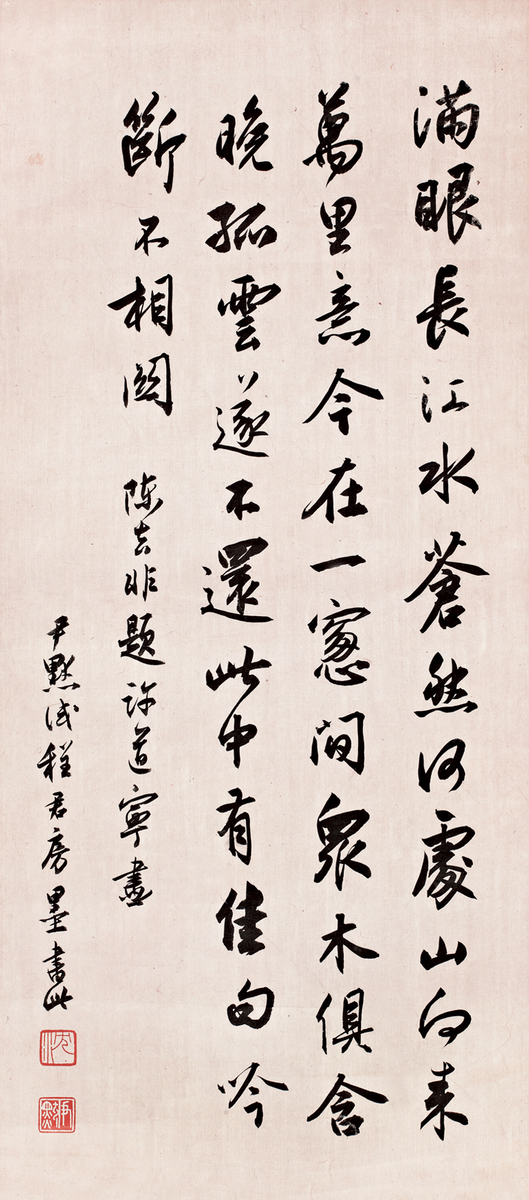 滿眼長江水蒼然何處山向來
萬里意今在一窗間衆木俱含
晚孤雲遂不還此中有佳句吟
斷不相關
陳去非題許道寧畫
尹默試程君房墨書此
沈
尹默